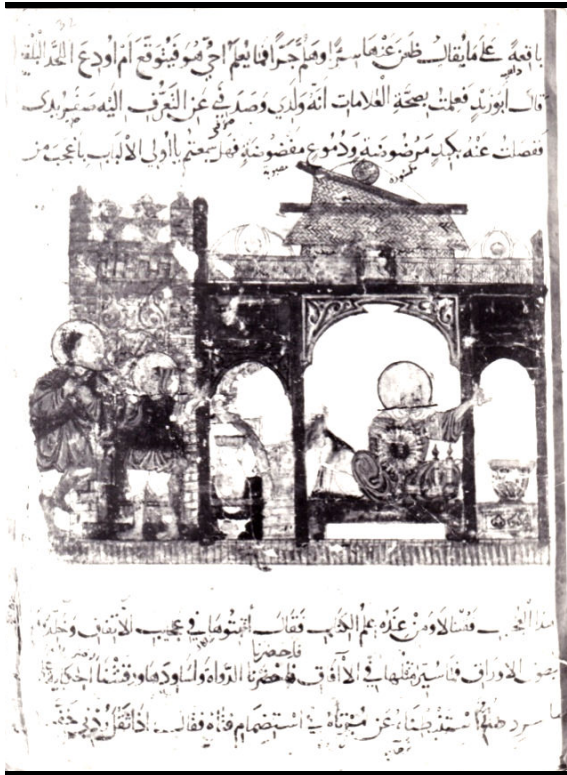 باقعة على ما يقال ظعن عنها سرا وهلم جرا فما يعلم احي هو فيتوقع ام اودع اللحد البلقع
قال ابو زيد فعلمت بصحة العلامات انه ولدي وصدفني عن التعرف اليه صفر يدي
ففصلت عنه بكبد مرضوضة ودموع مفضوضة فهل سمعتم يا اولي الالباب باعجب من
هذا العجب فقلنا لا ومن عنده علم الكتاب فقال اثبتوها في عجيب الاتفاق وخلدوها
فاحضرنا
بطون الاوراق فما سير مثلها في الآفاق فاحضرنا الدواة واساودها ورقشنا الحكاية
ما سردها ثم استبطناه عن مرتآه في استضمام فتاه فقال اذا ثقل ردني خف